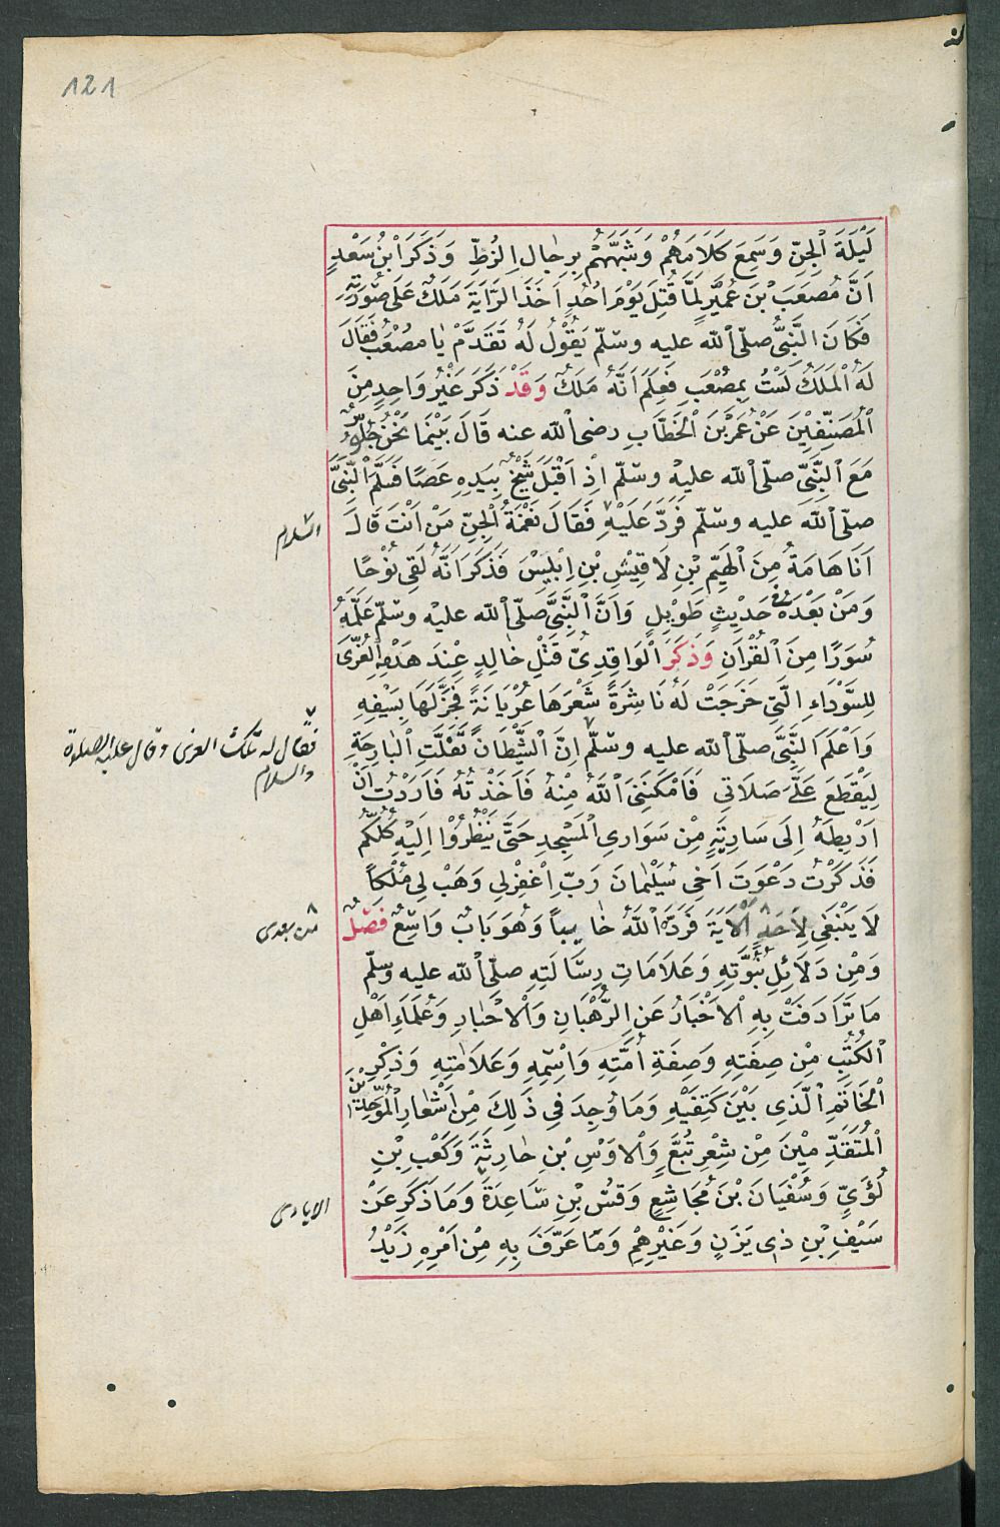 121
لَيْلَةَ الْجِنِّ وَسَمِعَ كَلَامَهُمْ وَشَبَّهَهُمْ بِرِجَالِ الزُّطِّ وَذَكَرَ ابْنُ سَعْدٍ
اَنَّ مُصْعَبَ بْنَ عُمَيْرٍ لَمَّا قُتِلَ يَوْمَ اُحُدٍ اَخَذَ الرَّايَةَ مَلَكٌ عَلَى صُورَتِهِ
فَكَانَ النَّبِيُّ صلّى الله عليه وسلّم يَقُولُ لَهُ تَقَدَّمْ يَا مُصْعَبُ فَقَالَ
لَهُ الْمَلَكُ لَسْتُ بِمُصْعَبٍ فَعَلِمَ اَنَّهُ مَلَكٌ وَقَدْ ذَكَرَ غَيْرُ وَاحِدٍ مِنَ
الْمُصَنِّفِينَ عَنْ عُمَرَ بْنَ الْخَطَّابِ رضى الله عنه قَالَ بَيْنَمَا نَحْنُ جُلُوسٌ
مَعَ النَّبِيِّ صلّى الله عليه وسلّم اِذْ اَقْبَلَ شَيْخٌ بِيَدِهِ عَصًا فَسَلَّمَ النَّبِيَّ
صلّى الله عليه وسلّم فَرَدَّ عَلَيْهِ فَقَالَ نَغْمَةُ الْجِنِّ مَنْ اَنْتَ قَالَ
السّلام
اَنَا هَامَةُ مِنَ الْهَيِّمِ بْنِ لَاقِيْسِ بْنِ اِبْلِيْسَ فَذَكَرَ اَنَّهُ لَقِى نُوْحًا
وَمَنْ بَعْدَهُ فى حَدِيْثٍ طَوِيْلٍ وَاَنَّ النَّبِيَّ صلّى الله عليه وسلّم عَلَّمَهُ
سُوَرًا مِنَ الْقُرْاَنِ وَذَكَرَ الْوَاقِدِىُّ قَتْلِ خَالِدٍ عِنْدَ هَدْمِهِ الْعُزّىَ
لِلسَّوْدَاءِ الَّتِي خَرَجَتْ لَهُ نَاشِرَةً شَعْرَهَا عُرْيَانَةً فَجَزَّلَهَا بِسَيْفِهِ
وَاَعْلَمَ النَّبِيَّ صلّى الله عليه وسلّم اِنَّ الشَّيْطَانَ تَفَلَّتَ الْبَارِحَةِ
فقال له تلك العزى وقال عليه الصلوة
والسلام
لِيَقْطَعَ عَلَىَّ صَلَاتِي فَاَمْكَنَنِىَ اللهُ مِنْهُ فَاَخَذْتُهُ فَاَرَدْتُ اَنْ
اَرْبِطَهُ اِلَى سَارِيَةٍ مِنْ سَوَارِى الْمَسْجِدِ حَتَّى تَنْظُرُوْا اِلَيْهِ كُلُّكُمْ
فَذَكَرْتُ دَعْوَتَ اَخِي سُلَيْمٰانَ رَبِّ اغْفِرْلِي وَهَبْ لِى مُلْكاً
لَا يَنْبَغِى لِاَحَدٍ الْاَيَةَ فَرَدَّهُ اللهُ خَاسِباً وَهُوَ بَابٌ وَاسِعٌ فَصْلٌ
من بعدى
وَمِنْ دَلَائِلِ نُبُوَّتِهِ وَعَلَامَاتِ رِسَالَتِهِ صلّى الله عليه وسلّم
مَا تَرَادَفَتْ بِهِ الْاَخْبَارُ عَنِ الرُّهْبَانِ وَالْاَحْبَارِ وَعُلَمَاءِ اَهْلِ
الْكُتُبِ مِنْ صِفَتِهِ وَصِفَةِ اُمَّتِهِ وَاسْمِهِ وَعَلَامَتِهِ وَذِكْرِ
الْخَاتَمِ الَّذِى بَيْنَ كَتِفَيْهِ وَمَا وُجِدَ فِي ذَلِكَ مِنْ اَشْعَارِ الْمُوَحِّدِيْنَ
الْمُتَقَدِّمِيْنَ مِنْ شِعْرِ تُبَّعٍ وَالْاَوْسِ بْنِ حَارِثَةَ وَكَعْبِ بْنِ
لُؤَيٍّ وَسُفْيَانَ بْنَ مُجَاشِعٍ وَقُسّ بْنِ سَاعِدَةَ وَمَا ذَكَرَ عَنْ
الايادى
سَيْفِ بْنِ ذِى يَزَنٍ وَغَيْرِهِمْ وَمَا عَرَّفَ بِهِ مِنْ اَمْرِهِ زَيْدُ